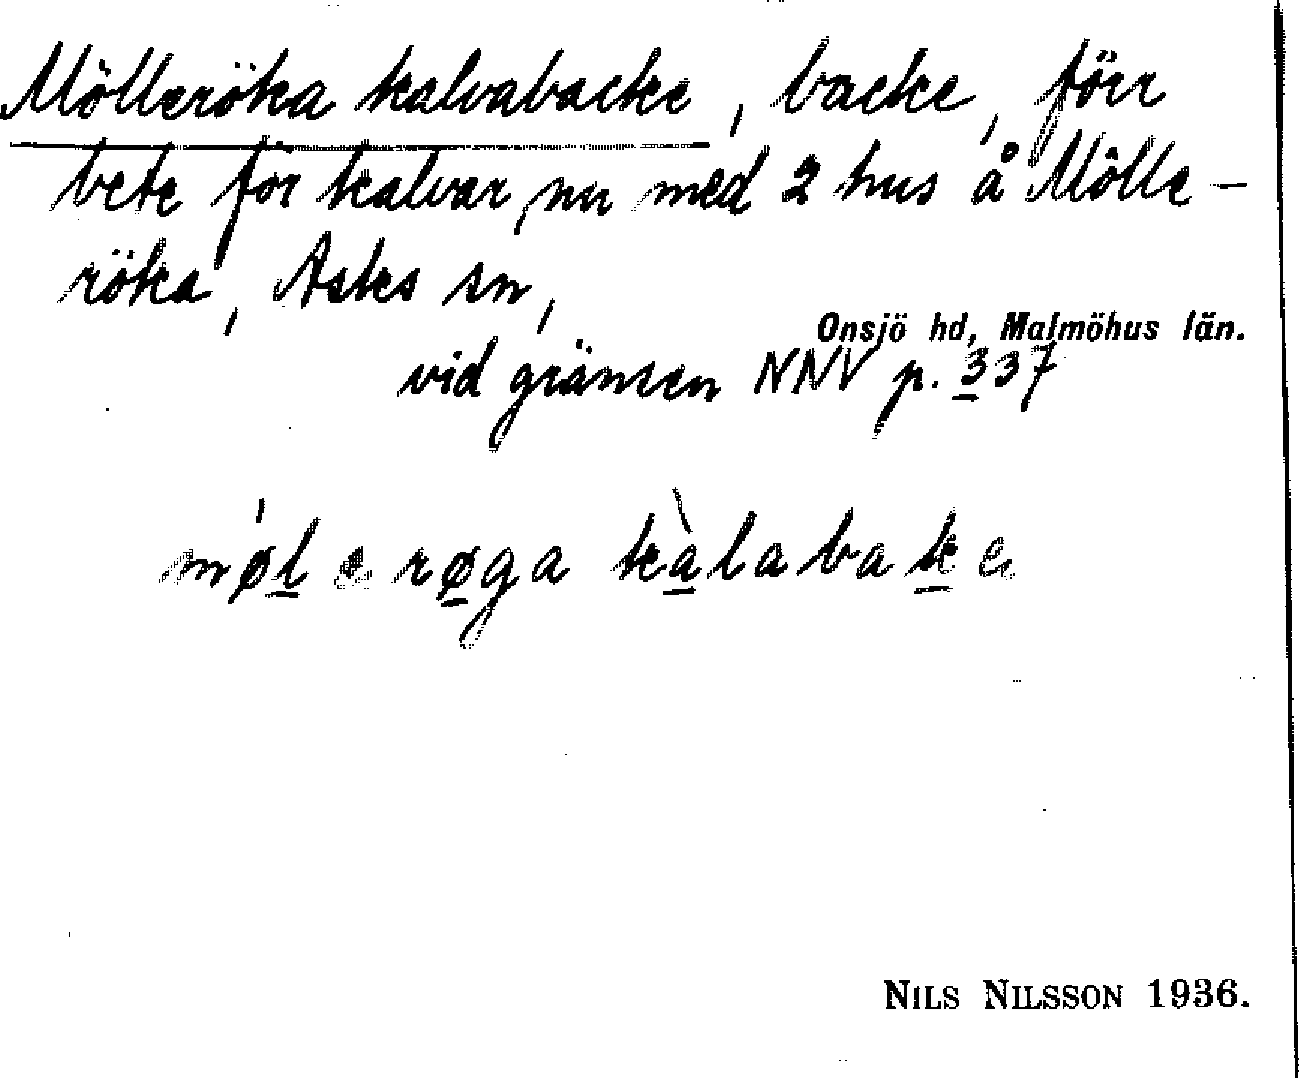 Mölleröka kalvabacke, backe, förr
bete för kalvar, nu med 2 hus å Mölle-
röka, Asks sn,
Onsjö hd, Malmöhus län.
vid gränsen NNV p. 337
mø̀lerøga kàlabake
NILS NILSSON 1936.